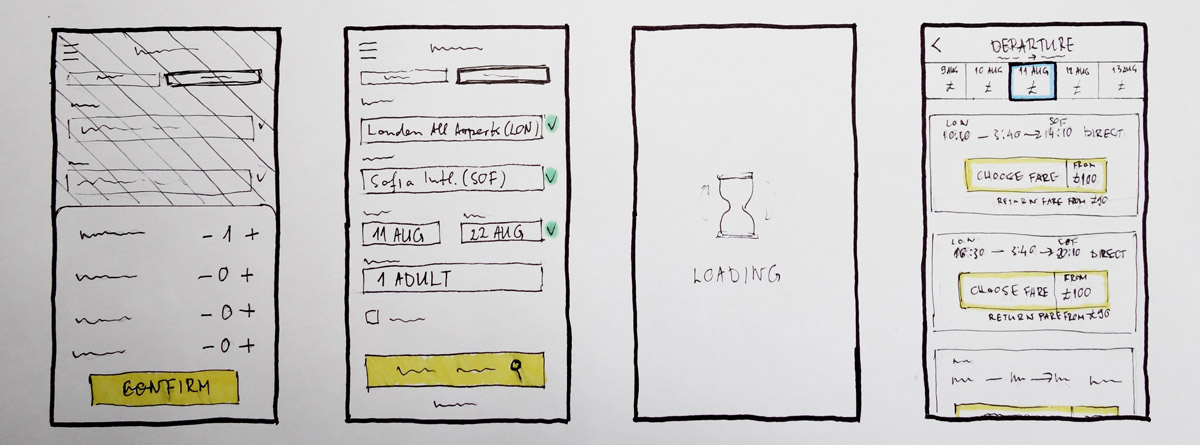 - 1 +
- 0 +
- 0 +
- 0 +
CONFIRM
London All Airports (LON)
Sofia Intl. (SOF)
11 AUG
22 AUG
1 ADULT
LOADING
<
DEPARTURE
9 AUG £
10 AUG £
11 AUG £
12 AUG £
13 AUG £
LON SOF
10:30 — 3:40 → 14:10 DIRECT
CHOOSE FARE
FROM
£100
RETURN FARE FROM £90
LON SOF
16:30 — 3:40 → 20:10 DIRECT
CHOOSE FARE
FROM
£100
RETURN FARE FROM £90